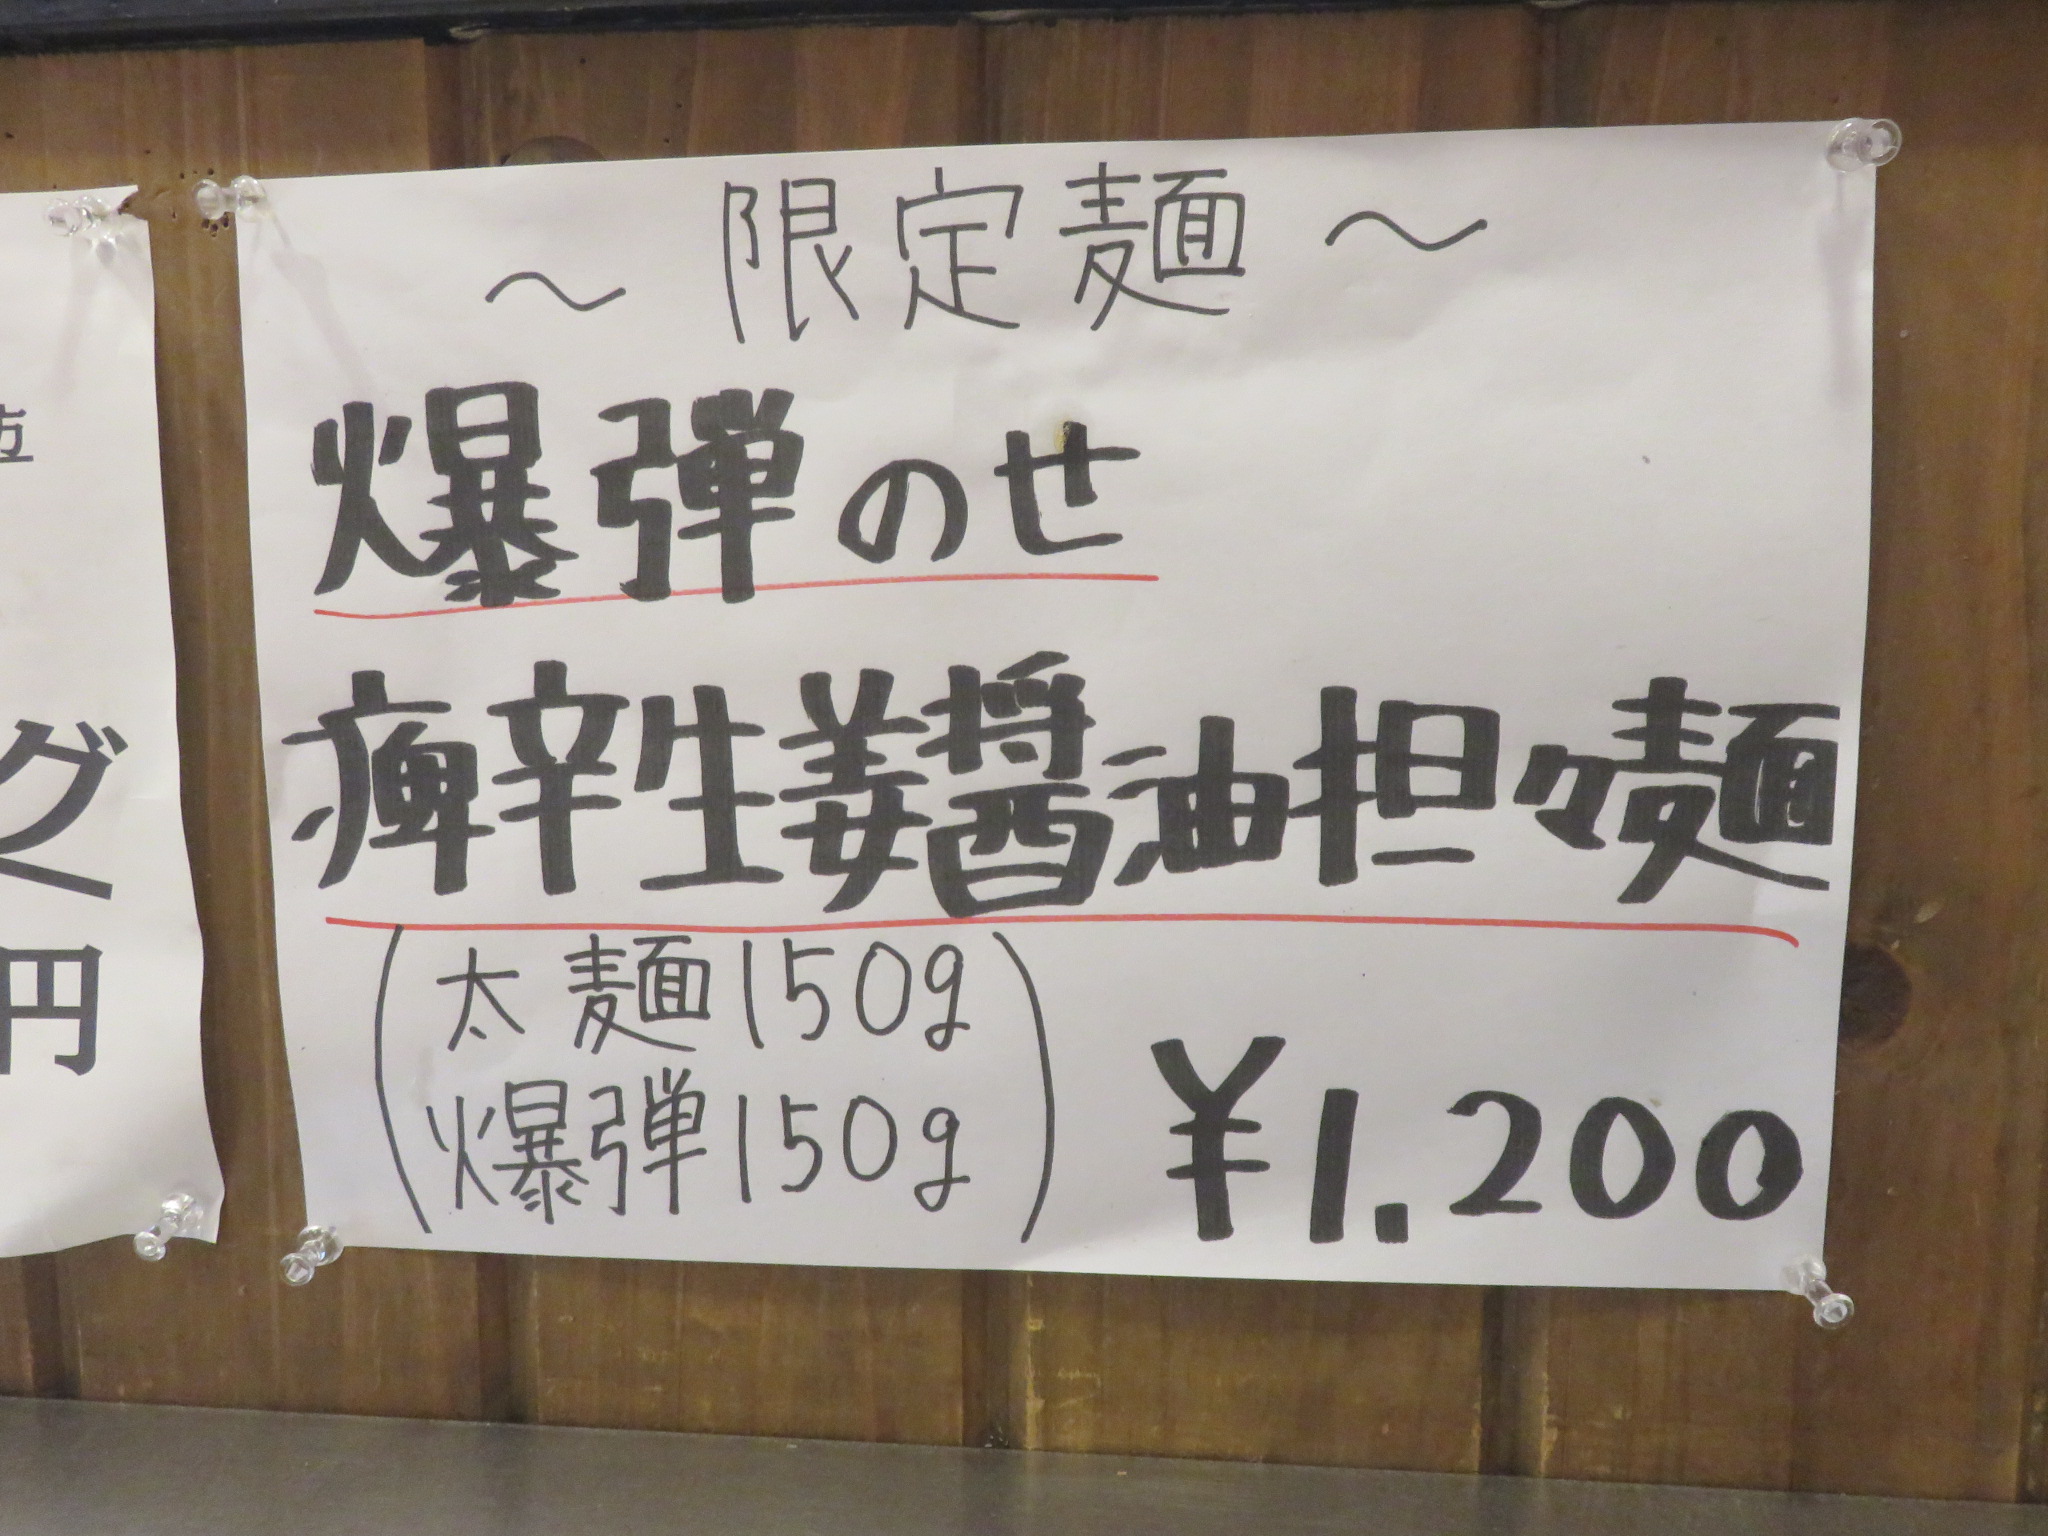 ～限定麺～
爆弾のせ
痺辛生姜醤油担々麺
(太麺150g
爆弾150g)
¥1.200
グ
円